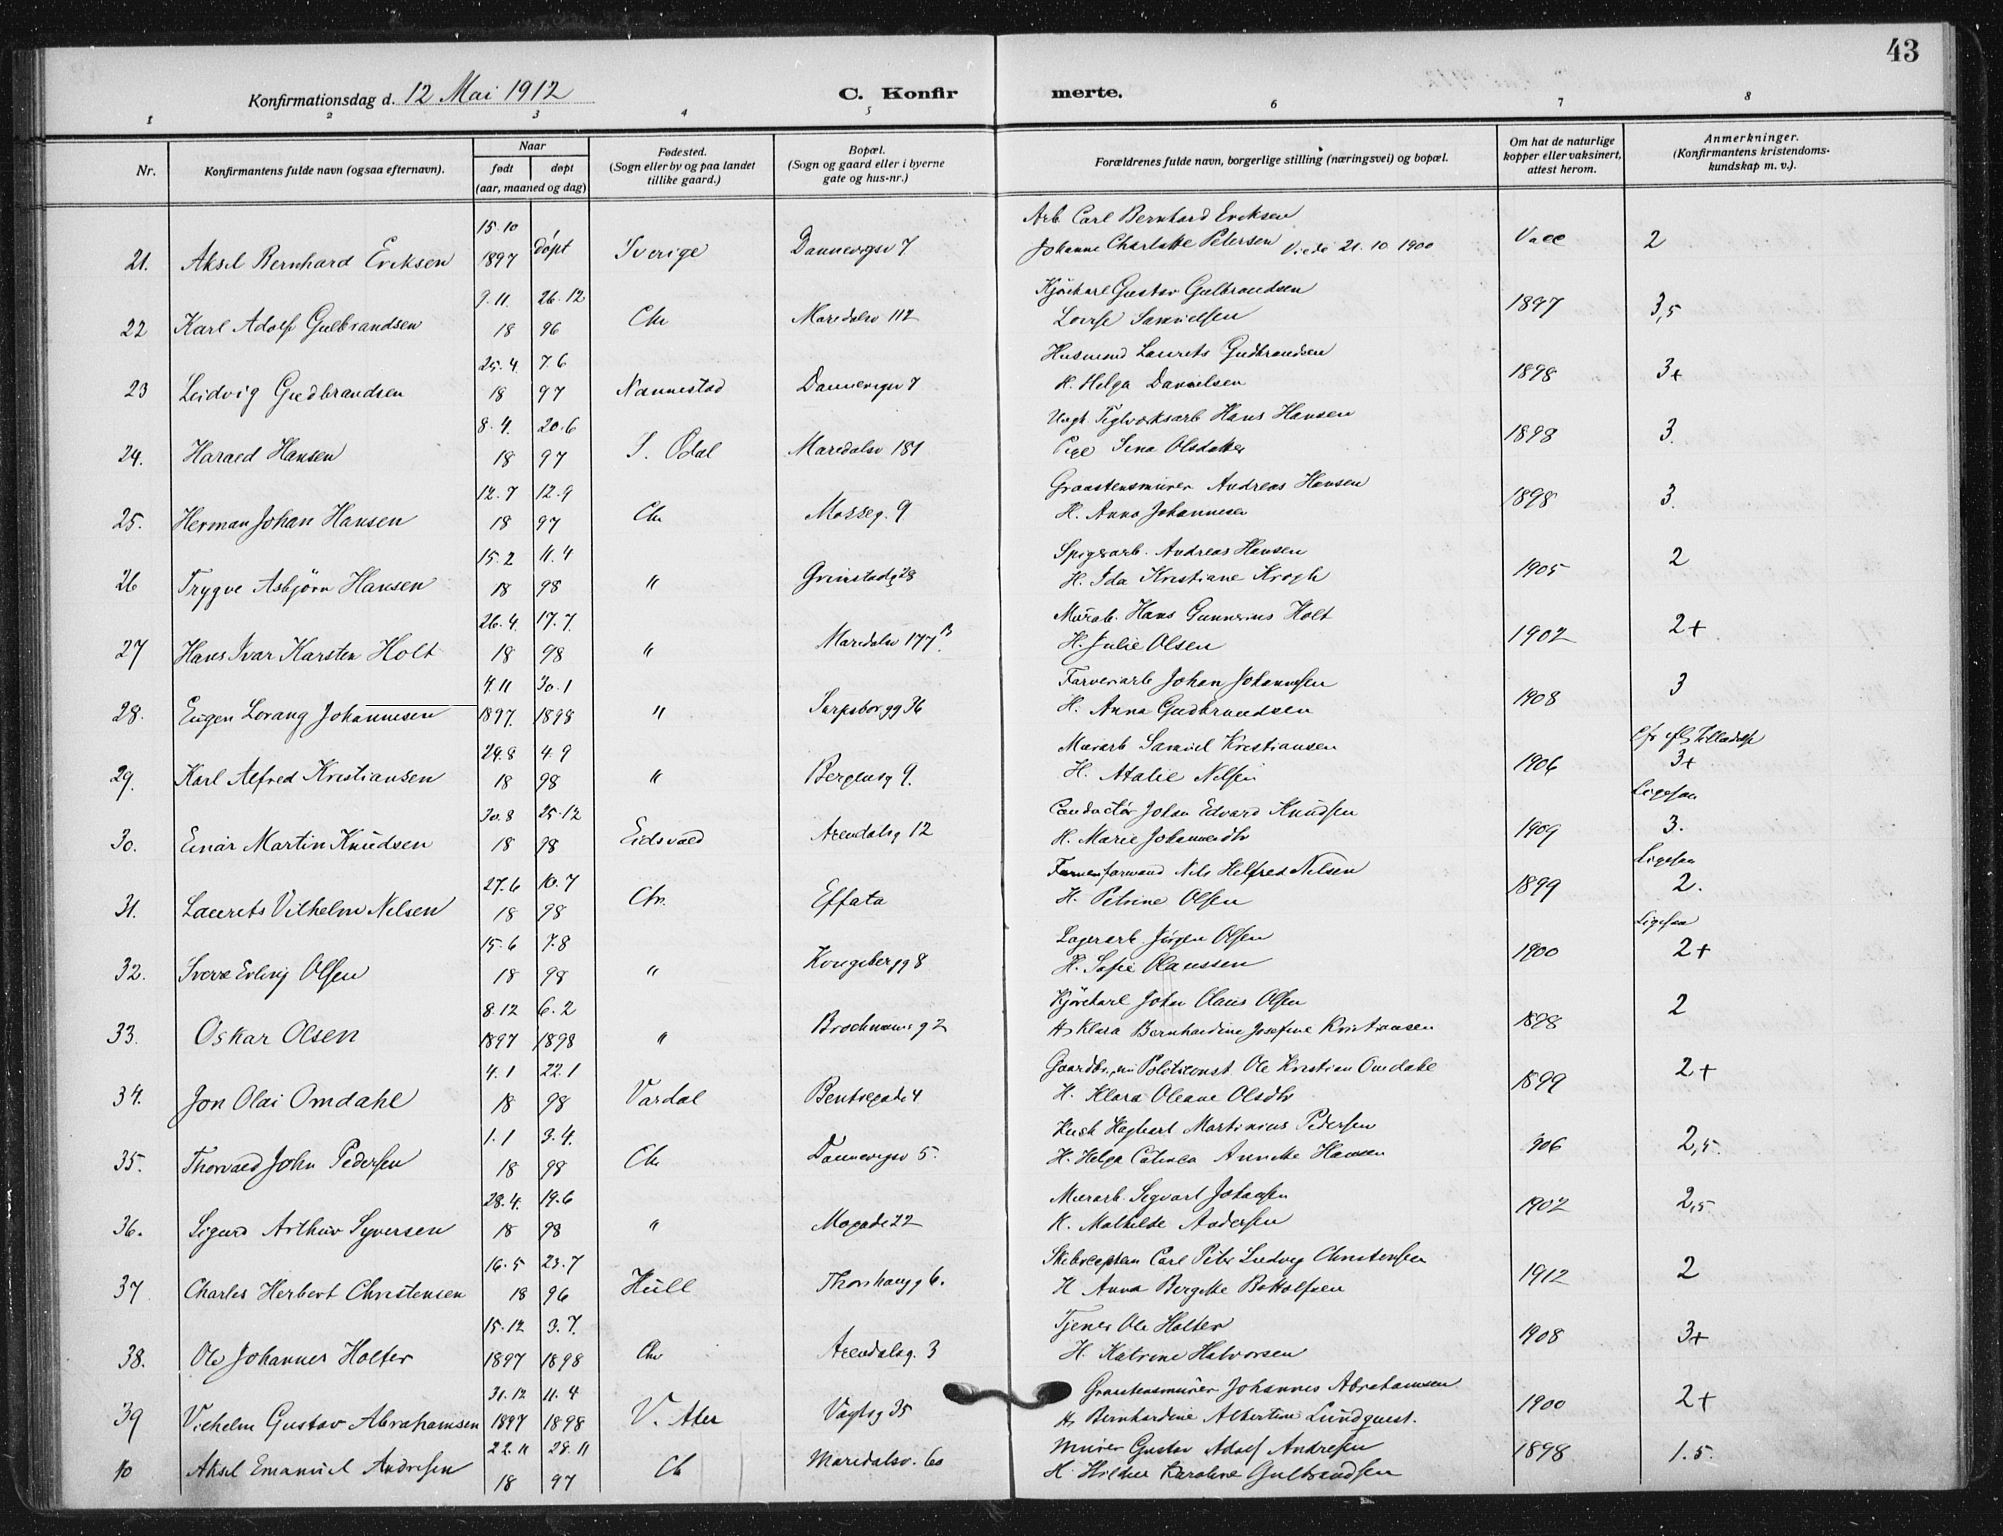 43
Konfirmationsdag d. 12 Mai 1912 C. Konfir merte.
1 2 3 4 5 6 7 8
Nr. Konfirmantens fulde navn (ogsaa efternavn). Naar født døpt (aar, maaned og dag) Fødested. (Sogn eller by og paa landet tillike gaard.) Bopæl. (Sogn og gaard eller i byerne gate og hus-nr.) Forældrenes fulde navn, borgerlige stilling (næringsvei) og bopæl. Om hat de naturlige kopper eller vaksinert, attest herom. Anmerkninger. (Konfirmantens kristendoms-kundskap m. v.).
15.10 Arb. Carl Bernhard Eriksen
21. Aksel Bernhard Eriksen 1897 døpt Sverige Dannevigsv 7 Johanne Charlotte Petersen Viede 21.10.1900 Vacc 2
9.11. 26.12 Kjørekarl Gustav Gulbrandsen
22 Karl Adolf Gulbrandsen 18 96 Chr Maridalsv 112 Lovise Samuelsen 1897 3,5
25.4. 7.6 Husmand Laurits Gudbrandsen
23 Leidvig Gudbrandsen 18 97 Nannestad Dannevigsv 7 H. Helga Danielsen 1898 3+
8.4. 20.6 Ungk. Teglverksarb Hans Hansen
24. Harald Hansen 18 97 S. Odal Maridalsv 181 Pige Sina Olsdatter 1898 3.
12.7 12.9 Graastensmurer Andreas Hansen
25. Herman Johan Hansen 18 97 Chr Mosseg. 9 H. Anna Johannesen 1898 3.
15.2 11.4 Spigerarb. Andreas Hansen
26 Trygve Asbjørn Hansen 18 98 " Grimstadg 28 H. Ida Kristiane Krogh 1905 2
26.4. 17.7. Murarb. Hans Gunnerius Holt
27 Hans Ivar Karsten Holt 18 98 " Maridalsv 177 B. H. Julie Olsen 1902 2+
4.11 30.1 Farveriarb Johan Johannesen
28. Eugen Lorang Johannesen 1897. 1898 " Sarpsborgg 36 H. Anna Gudbrandsen 1908 3
24.8 4.9 Murarb Samuel Kristiansen
29. Karl Alfred Kristiansen 18 98 " Bergensg 9. H. Atalie Nelsen 1906 3+
30.8 25.12 Conductør Johan Edvard Knudsen Ligesaa
30. Einar Martin Knudsen 18 98 Eidsvold Arendalsg 12 H. Marie Johannesdtr 1909 3.
27.6 10.7 Nils Helfred Nilsen Ligesaa
31. Laurets Vilhelm Nelsen 18 98 Chr. Effata H. Petrine Olsen 1899 2.
15.6 7.8 Lagerarb. Jørgen Olsen Ligesaa
32. Sverre Erling Olsen 18 98 " Kongsbergg 8 H. Sofie Olaussen 1900 2+
8.12 6.2 Kjørekarl Johan Olaus Olsen
33. Oskar Olsen 1897 1898 " Brochmansg 2 H. Klara Bernhardine Josefine Kristiansen 1898 2
4.1 22.1 Gaardbr., nu Politikonst. Ole Kristian Omdahl
34. Jon Olai Omdahl 18 98 Vardal Bentsegade 4 H. Klara Oleane Olsdtr 1899 2+
1.1 3.4. Kusk Hagbart Martinius Pedersen
35. Thorvald John Pedersen 18 98 Chr Dannevigsv 5. H. Helga Catinca Annette Hansen 906 2,5.
28.4. 19.6 Murarb. Segvart Johansen
36. Sigurd Arthur Syversen 18 98 " Mogade 22 H. Mathilde Andersen 1902 2,5
16.5 23.7 Skibscaptein Carl Peter Ludvig Christensen
37 Charles Herbert Christensen 18 96 Hull Thorshaugg 6. H Anna Bergitte Bottolfsen 1912 2
15.12 3.7. Tjener Ole Holter
38. Ole Johannes Holter 1897 1898 Chr Arendalsg. 3 H. Katrine Halvorsen 1908 3+
31.12 11.4 Graastensmurer Johannes Abrahamsen
39 Vilhelm Gustav Abrahamsen 1897 1898 V. Aker Vogtsg 35 H. Bernhardine Albertine Lundquist. 1900 2+
22.11 28.11 Murer Gustav Adolf Andresen
40 Aksel Emanuel Andresen 18 97 Ch Maridalsv. 60 H. Hilda Karoline Gulbrandsen 1898 1.5.